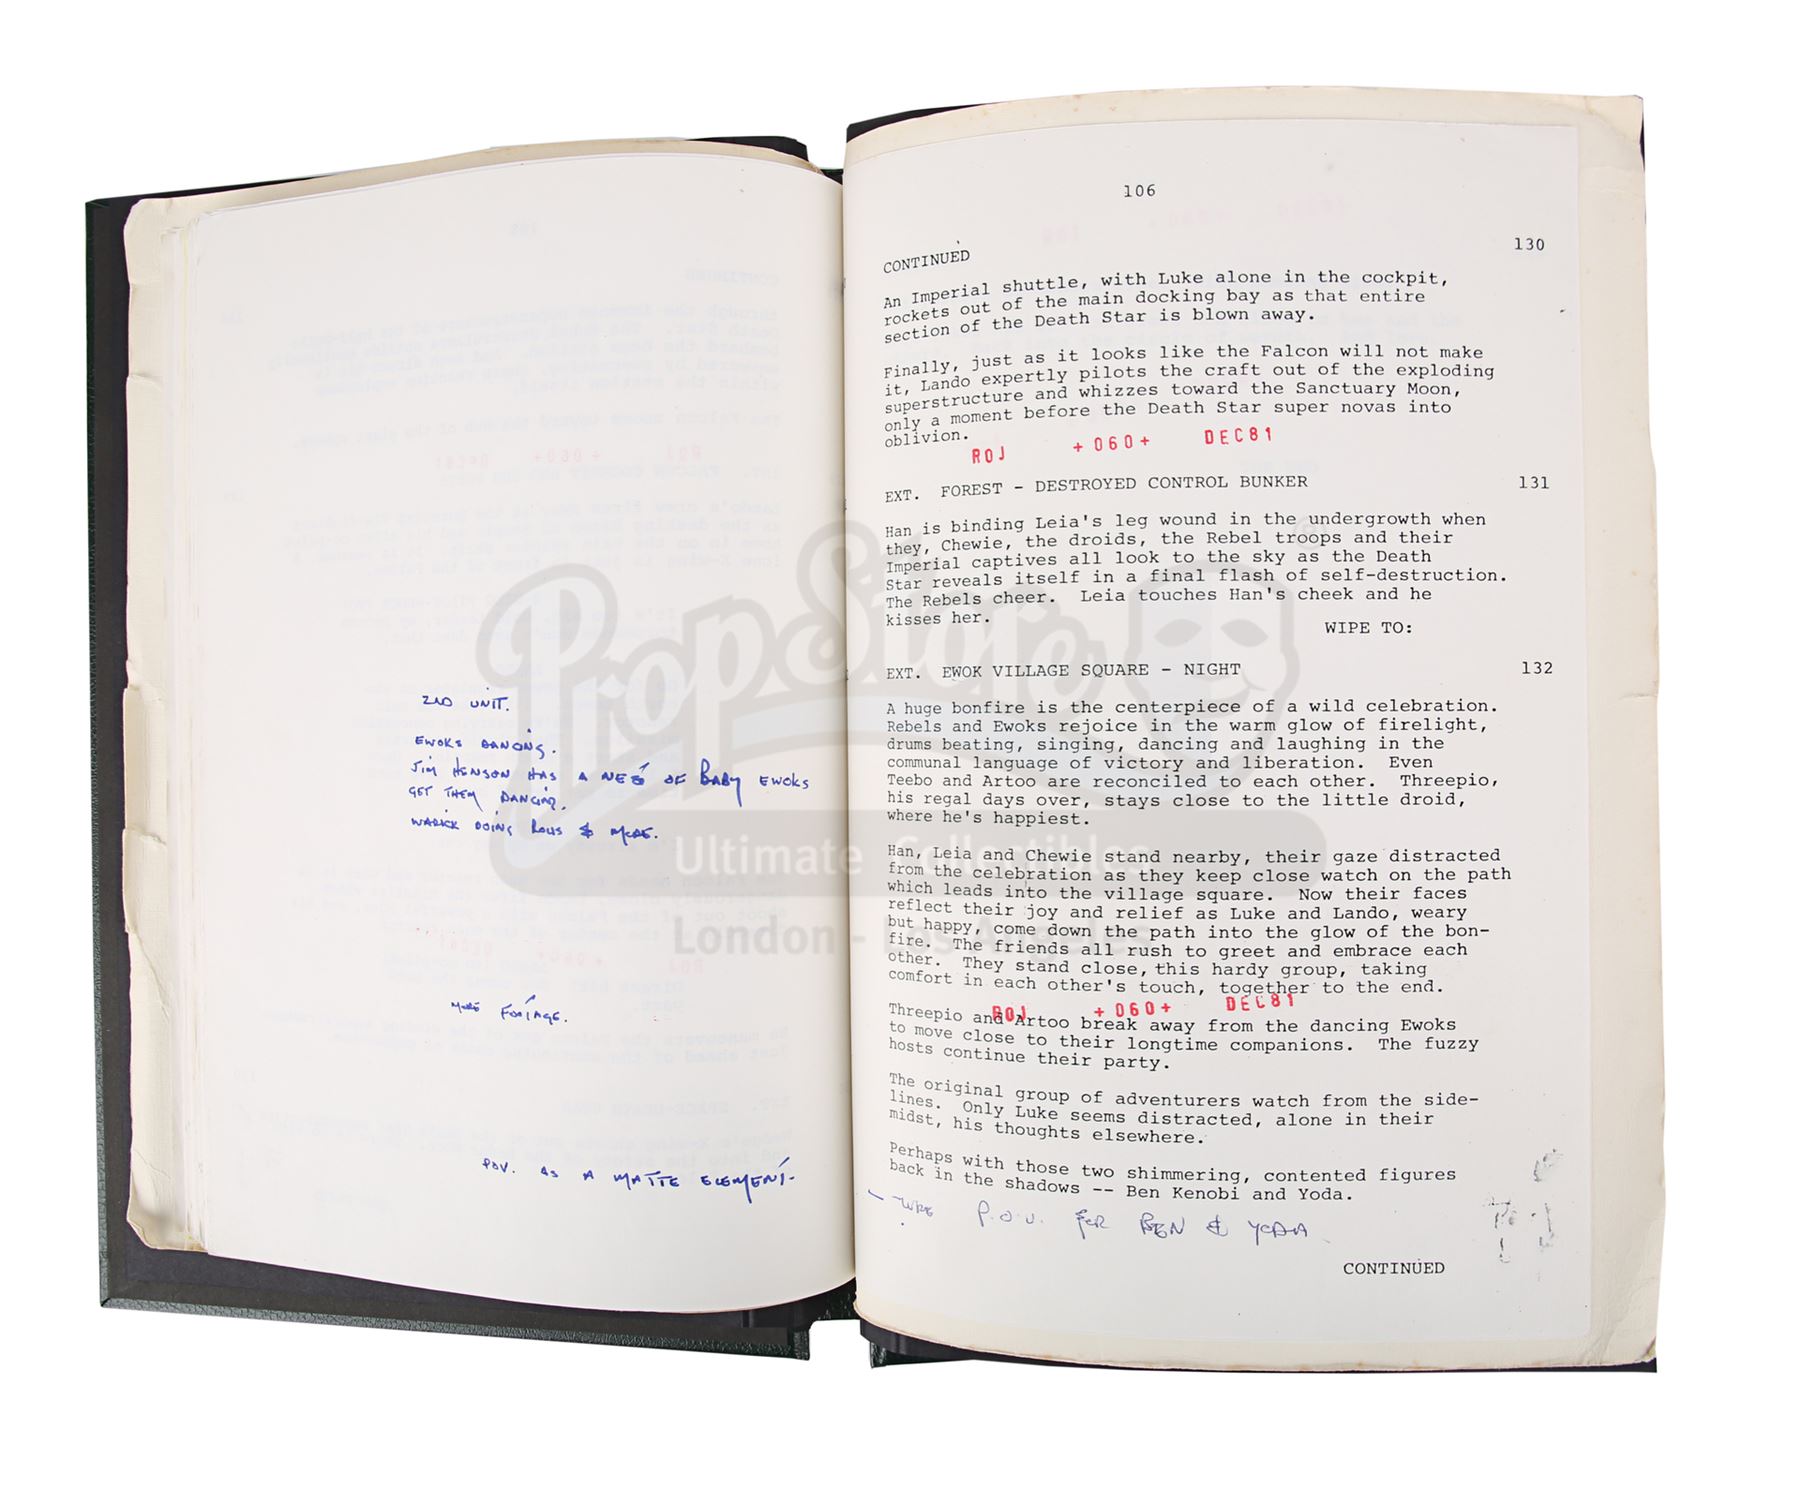 2ND UNIT.
EWOKS DANCING.
JIM HENSON HAS A NEST OF BABY EWOKS
GET THEM DANCING.
WARICK DOING ROLLS & MORE.
MORE FOOTAGE.
POV. AS A MATTE ELEMENT.
106
CONTINUED 130
An Imperial shuttle, with Luke alone in the cockpit,
rockets out of the main docking bay as that entire
section of the Death Star is blown away.
Finally, just as it looks like the Falcon will not make
it, Lando expertly pilots the craft out of the exploding
superstructure and whizzes toward the Sanctuary Moon,
only a moment before the Death Star super novas into
oblivion.
ROJ +060+ DEC81
EXT. FOREST - DESTROYED CONTROL BUNKER 131
Han is binding Leia's leg wound in the undergrowth when
they, Chewie, the droids, the Rebel troops and their
Imperial captives all look to the sky as the Death
Star reveals itself in a final flash of self-destruction.
The Rebels cheer. Leia touches Han's cheek and he
kisses her.
WIPE TO:
EXT. EWOK VILLAGE SQUARE - NIGHT 132
A huge bonfire is the centerpiece of a wild celebration.
Rebels and Ewoks rejoice in the warm glow of firelight,
drums beating, singing, dancing and laughing in the
communal language of victory and liberation. Even
Teebo and Artoo are reconciled to each other. Threepio,
his regal days over, stays close to the little droid,
where he's happiest.
Han, Leia and Chewie stand nearby, their gaze distracted
from the celebration as they keep close watch on the path
which leads into the village square. Now their faces
reflect their joy and relief as Luke and Lando, weary
but happy, come down the path into the glow of the bon-
fire. The friends all rush to greet and embrace each
other. They stand close, this hardy group, taking
comfort in each other's touch, together to the end.
ROJ +060+ DEC81
Threepio and Artoo break away from the dancing Ewoks
to move close to their longtime companions. The fuzzy
hosts continue their party.
The original group of adventurers watch from the side-
lines. Only Luke seems distracted, alone in their
midst, his thoughts elsewhere.
Perhaps with those two shimmering, contented figures
back in the shadows -- Ben Kenobi and Yoda.
P.O.V. FOR BEN & YODA
CONTINUED
PropStore
Ultimate Collectibles
London - Los Angeles